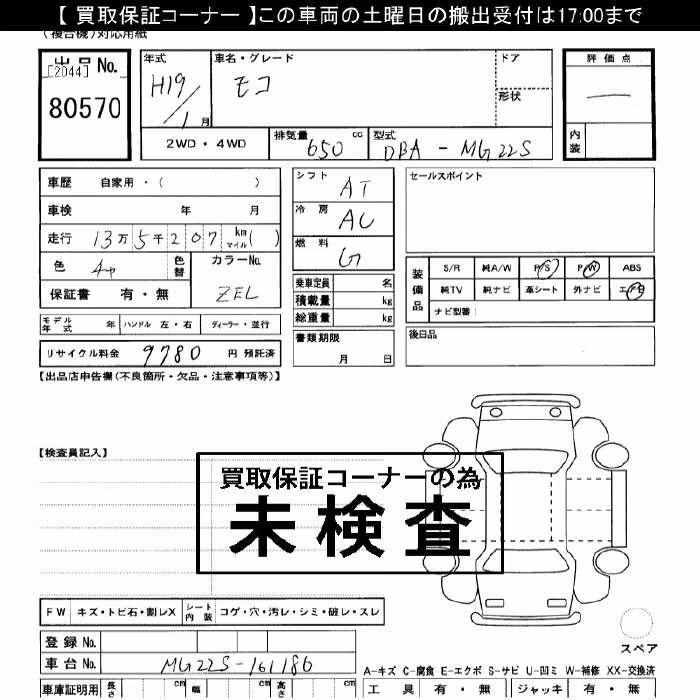 【 買取保証コーナー 】この車両の土曜日の搬出受付は17:00まで
(複合機)対応用紙
出品 No.
[2044]
80570
年式 H19/1月
車名・グレード モコ
ドア
形状
評価点 —
内装
2WD・4WD
排気量 650 cc
型式 DBA - MG22S
車歴 自家用・( )
車検 年 月
走行 13万5千207 km マイル ( )
色
色替
カラーNo. ZEL
保証書 有・無
シフト AT
冷房 AC
燃料 G
乗車定員 名
積載量 kg
総重量 kg
書類期限 月 日
セールスポイント
装備品
S/R 純A/W P/S P/W ABS
純TV 純ナビ 革シート 外ナビ エアB
ナビ型番:
後日品
モデル年式 年 ハンドル 左・右 ディーラー・並行
リサイクル料金 9780 円 預託済
【出品店申告欄(不良箇所・欠品・注意事項等)】
【検査員記入】
買取保証コーナーの為
未検査
FW キズ・トビ石・割レX シート内装 コゲ・穴・汚レ・シミ・破レ・スレ
登録 No.
車台 No. MG22S-161186
車庫証明用 長さ cm 幅 cm 高さ cm
スペア
A-キズ C-腐食 E-エクボ S-サビ U-凹ミ W-補修 XX-交換済
工具 有・無 ジャッキ 有・無